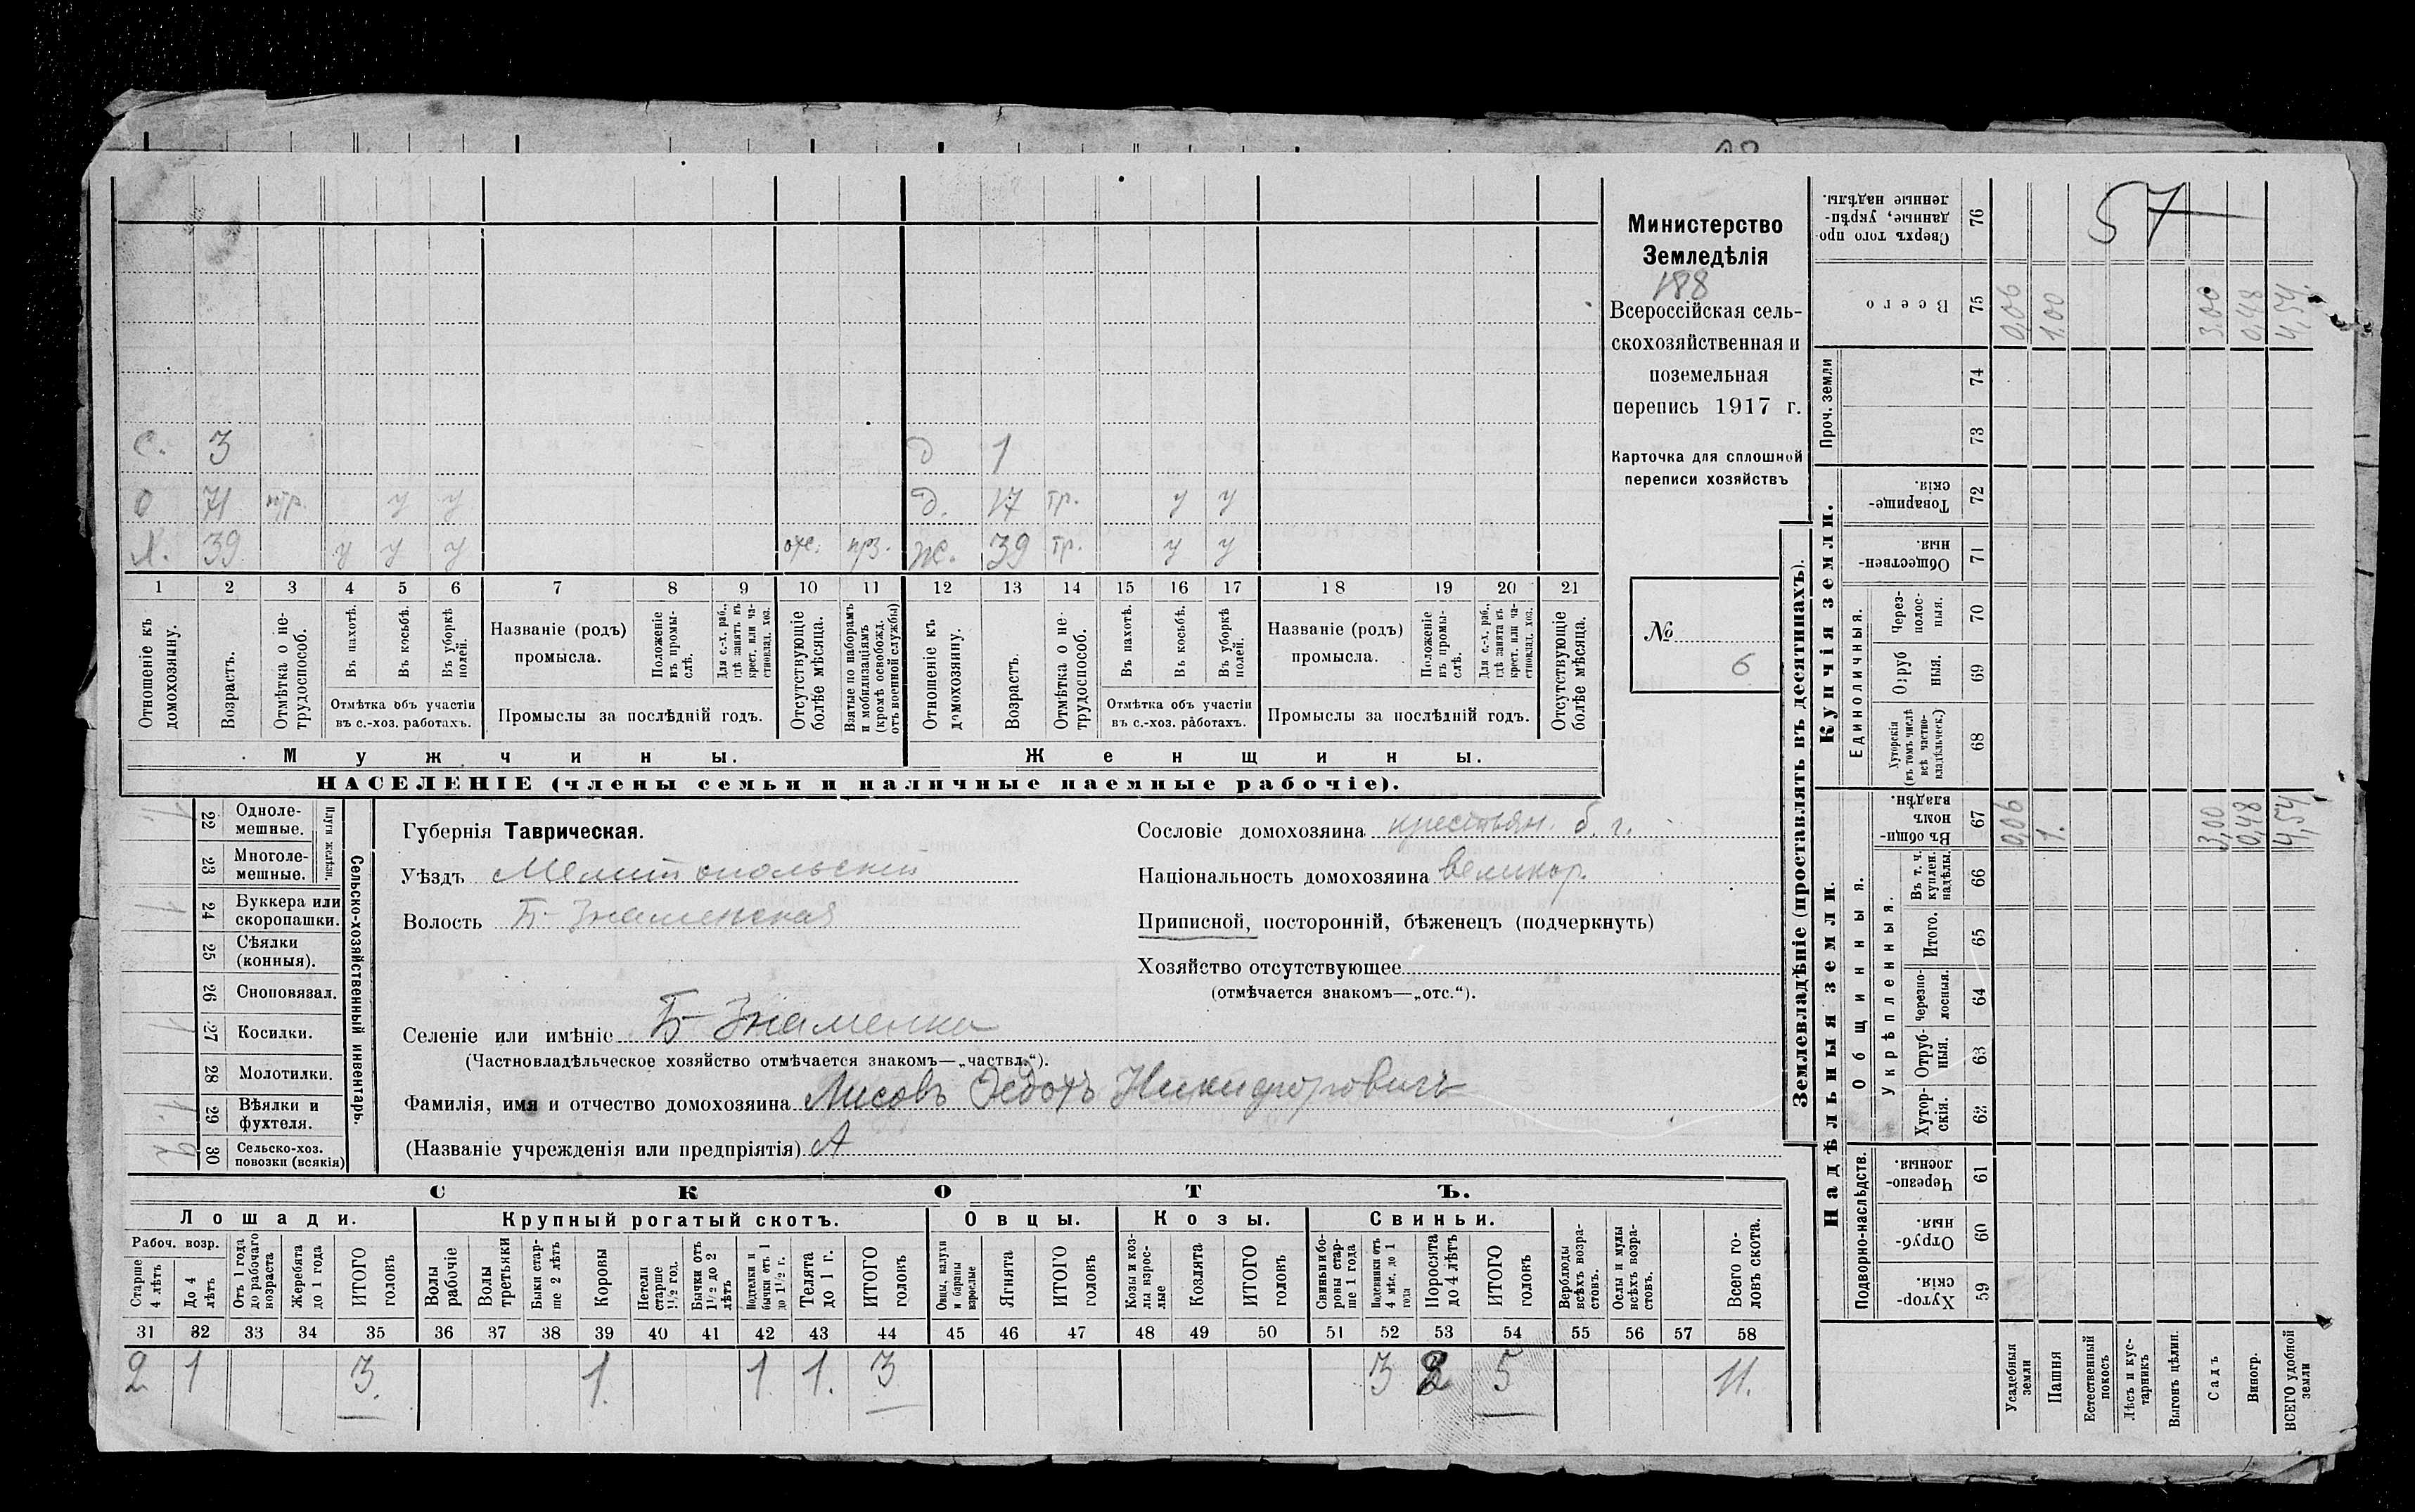 57
Министерство
Земледѣлія
188
Всероссійская сель-
скохозяйственная и
поземельная
перепись 1917 г.
Карточка для сплошной
переписи хозяйствъ
№
6
с. 3 д 1
о 71 нтр. у у д. 17 тр. у у
Х. 39 у у у отс. прз. ж. 39 тр. у у
1 2 3 4 5 6 7 8 9 10 11 12 13 14 15 16 17 18 19 20 21
Отношеніе къ домохозяину.
Возрастъ.
Отмѣтка о не-трудоспособ.
Въ пахотѣ.
Въ косьбѣ.
Въ уборкѣ полей.
Отмѣтка объ участіи
въ с.-хоз. работахъ.
Названіе (родъ)
промысла.
Положеніе въ промы-слѣ.
Для с.-х. раб., гдѣ занятъ въ крест. или ча-стновлад. хоз.
Промыслы за послѣдній годъ.
Отсутствующіе болѣе мѣсяца.
Взятые по наборамъ и мобилизаціямъ (кромѣ освобожд. отъ военной службы)
Отношеніе къ домохозяину.
Возрастъ.
Отмѣтка о не-трудоспособ.
Въ пахотѣ.
Въ косьбѣ.
Въ уборкѣ полей.
Отмѣтка объ участіи
въ с.-хоз. работахъ.
Названіе (родъ)
промысла.
Положеніе въ промы-слѣ.
Для с.-х. раб., гдѣ занята въ крест. или ча-стновлад. хоз.
Промыслы за послѣдній годъ.
Отсутствующіе болѣе мѣсяца.
Мужчины.
Женщины.
НАСЕЛЕНІЕ (члены семьи и наличные наемные рабочіе).
Сельско-хозяйственный инвентарь.
Плуги желѣзн.
1. 22 Одноле-
мешные.
23 Многоле-
мешные.
1 24 Буккера или
скоропашки.
25 Сѣялки
(конныя).
26 Сноповязал.
1 27 Косилки.
28 Молотилки.
1. 29 Вѣялки и
фухтеля.
2 30 Сельско-хоз.
повозки (всякія)
Губернія Таврическая.
Уѣздъ Мелитопольскій
Волость Б-Знаменская
Селеніе или имѣніе Б-Знаменка
(Частновладѣльческое хозяйство отмѣчается знакомъ—„частвл.“).
Фамилія, имя и отчество домохозяина Лисовъ Федотъ Никифоровичъ
(Названіе учрежденія или предпріятія) А
Сословіе домохозяина крестьян. б. г.
Національность домохозяина великор.
Приписной, посторонній, бѣженецъ (подчеркнуть)
Хозяйство отсутствующее
(отмѣчается знакомъ—„отс.“).
СКОТЪ.
Лошади. Крупный рогатый скотъ. Овцы. Козы. Свиньи.
Рабоч. возр.
Старше 4 лѣтъ
До 4 лѣтъ
Отъ 1 года до рабочаго возраста
Жеребята до 1 года
ИТОГО головъ
Волы рабочіе
Волы третьяки
Быки стар-ше 2 лѣтъ
Коровы
Нетели старше 1½ год.
Бычки отъ 1½ до 2 лѣтъ
Подтелки и бычки отъ 1 до 1½ г.
Телята до 1 г.
ИТОГО головъ
Овцы, валухи и бараны взрослые
Ягнята
ИТОГО головъ
Козы и коз-лы взрос-лые
Козлята
ИТОГО головъ
Свиньи и бо-ровы стар-ше 1 года
Подсвинки отъ 4 мѣс. до 1 года
Поросята до 4 лѣтъ
ИТОГО головъ
Верблюды всѣхъ возра-стовъ.
Ослы и мулы всѣхъ возра-стовъ.
Всего го-ловъ скота.
31 32 33 34 35 36 37 38 39 40 41 42 43 44 45 46 47 48 49 50 51 52 53 54 55 56 57 58
2 1 3. 1. 1 1. 3 3 2 5 11.
Землевладѣніе (проставлять въ десятинахъ).
Надѣльныя земли.
Купчія земли.
Проч. земли
Подворно-наслѣдств.
Общинныя.
Укрѣпленныя.
Единоличныя.
Сверхъ того про-данные, укрѣп-ленные надѣлы. 76
Всего 75
74
73
Товарище-скія. 72
Обществен-ныя. 71
Через-полос-ныя. 70
Отруб ныя. 69
Хуторскія (въ томъ числѣ всѣ частно-владѣльческ.) 68
Въ общин-номъ владѣн. 67
Въ т. ч. куплен. надѣлы. 66
Итого. 65
Черезпо-лосныя. 64
Отруб-ныя. 63
Хутор-скія. 62
Черезпо-лосныя. 61
Отруб-ныя. 60
Хутор-скія. 59
Усадебныя земли 0,06 0,06
Пашня 1. 1.00
Естественный покосъ
Лѣсъ и кус-тарникъ
Выгонъ цѣлин.
Садъ 3,00 3.00
Виногр. 0,48 0,48
ВСЕГО удобной земли 4,54 4,54.